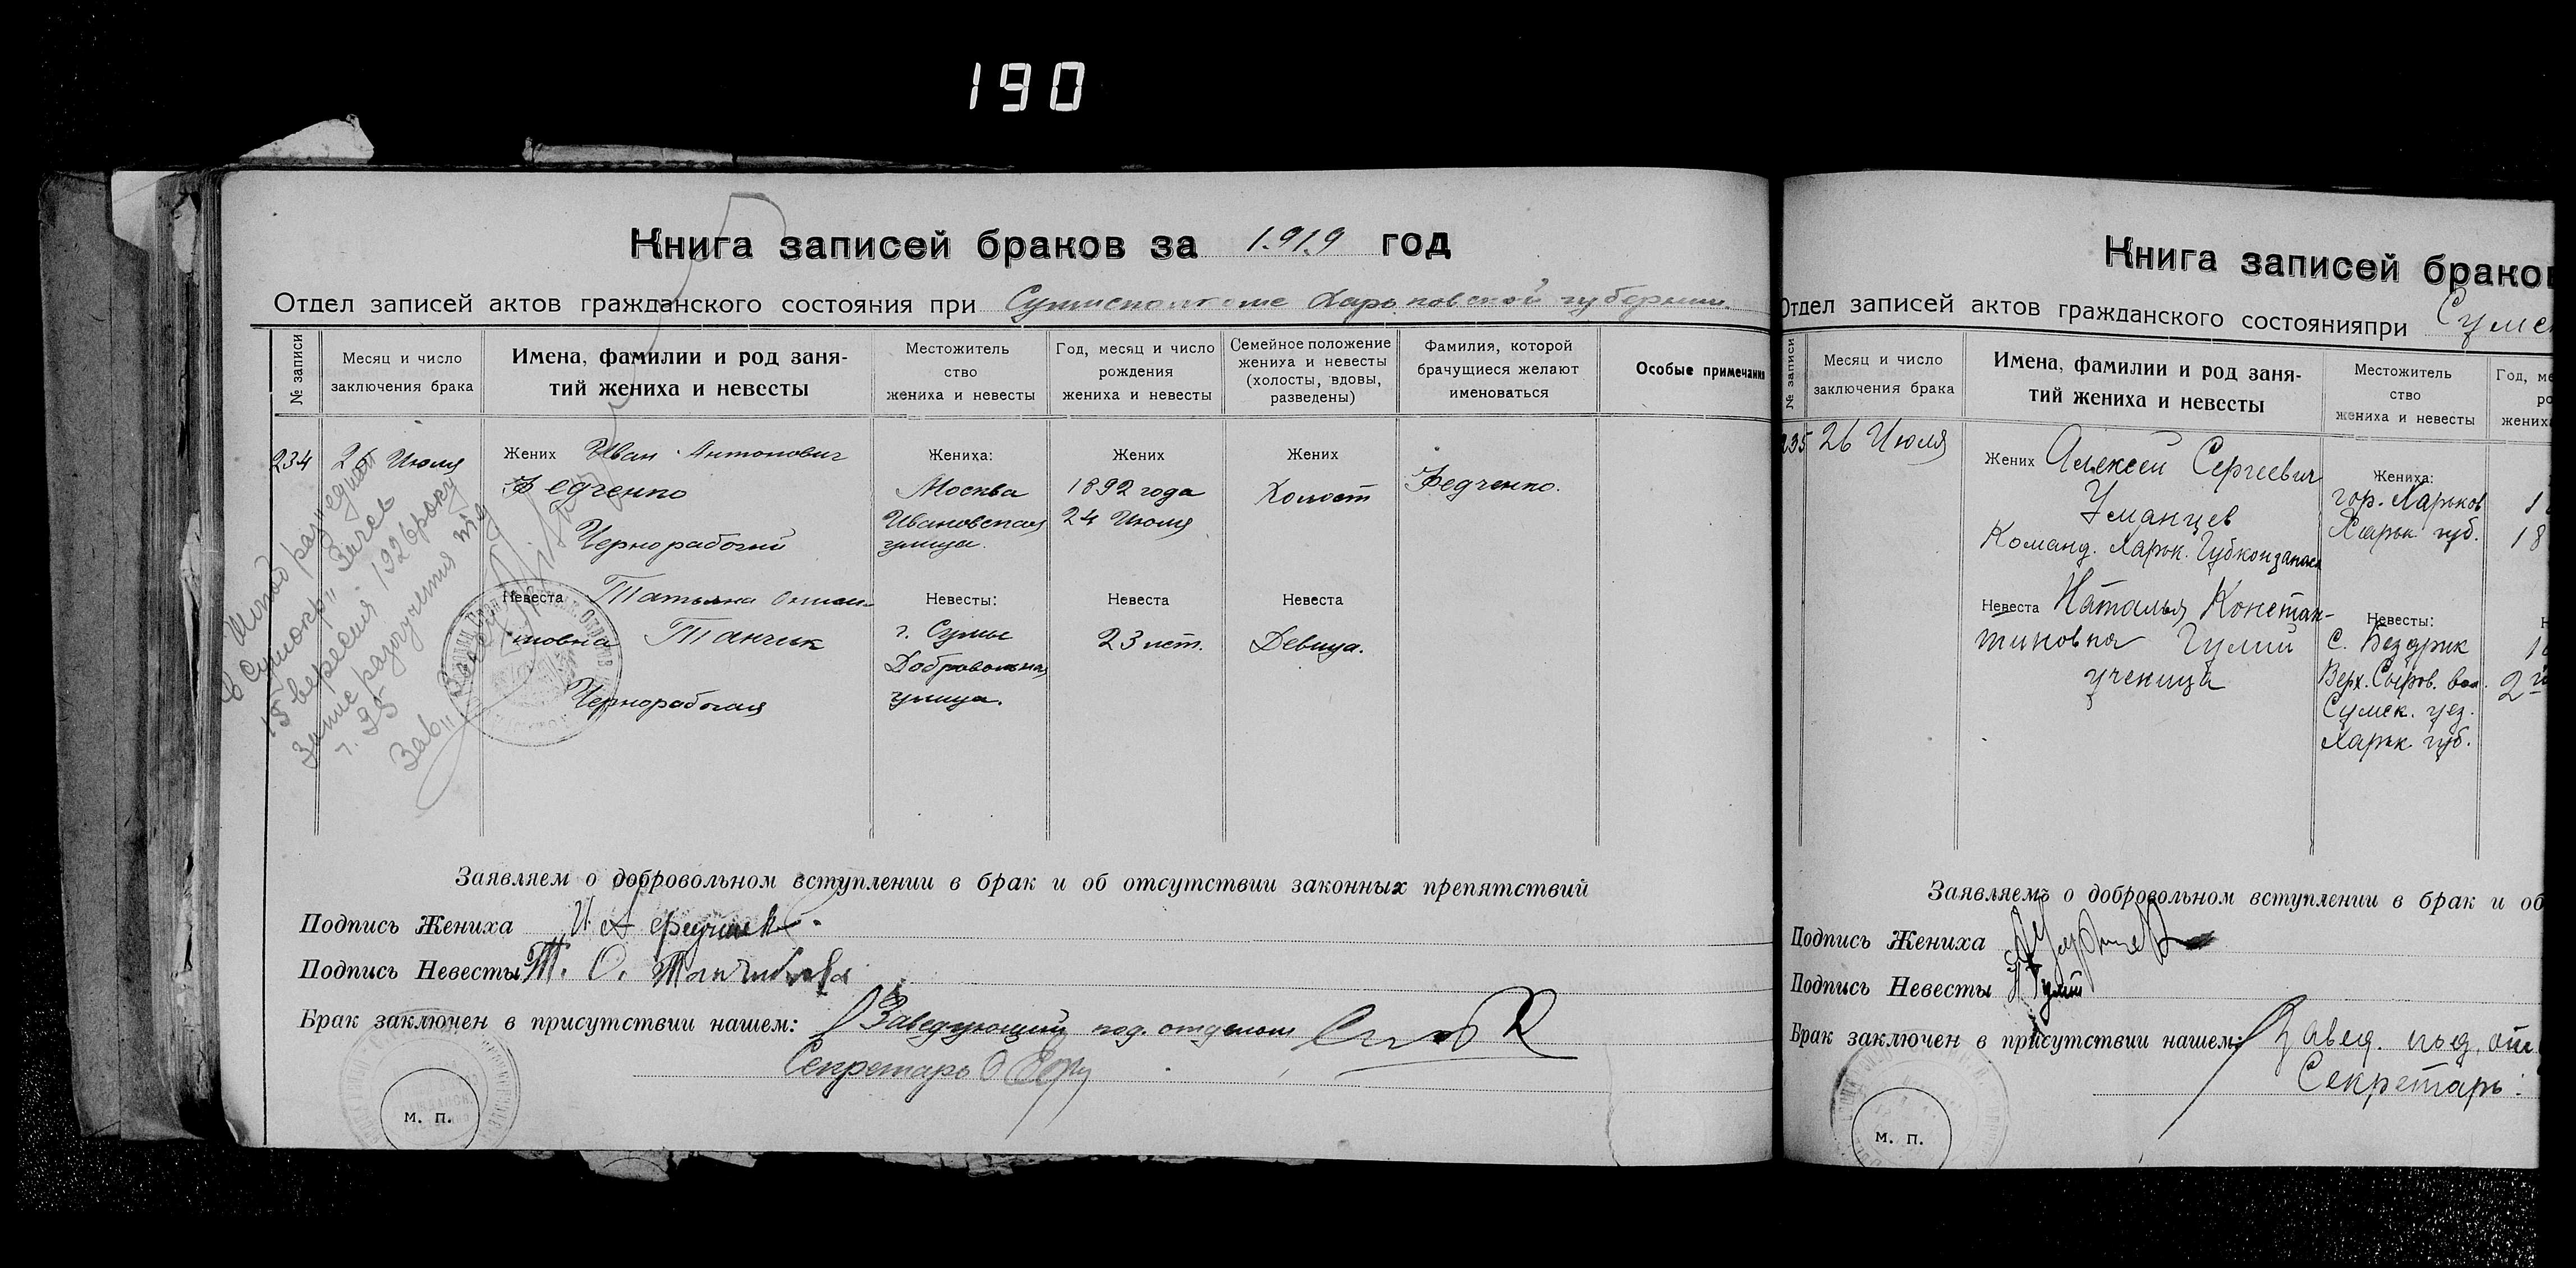 190
Книга записей браков за 1919 год
Отдел записей актов гражданского состояния при Сумисполкоме Харьковской губернии.
№ записи
Месяц и число заключения брака
Имена, фамилии и род заня-
тий жениха и невесты
Местожитель
ство
жениха и невесты
Год, месяц и число
рождения
жениха и невесты
Семейное положение
жениха и невесты
(холосты, вдовы,
разведены)
Фамилия, которой
брачущиеся желают
именоваться
Особые примечания
234
26 Июля
Жених Иван Антонович
Федченко
Чернорабочий
Невеста Татьяна
Танчик
Чернорабочая
Жениха:
Москва
Ивановская
улица.
Невесты:
г. Сумы
Добровольная
улица.
Жених
1892 года
24 Июля
Невеста
23 лет.
Жених
Холост
Невеста
Девица.
Федченко.
Шлюб
в Сумокр.
15 вересня 1926 року
Запис розлучення
ч. 95
Зав.
Заявляем о добровольном вступлении в брак и об отсутствии законных препятствий
Подпись Жениха И А Федченко
Подпись Невесты Т. О.
Брак заключен в присутствии нашем: Заведующий под. отделом
Секретарь
м. п.
Книга записей браков
Отдел записей актов гражданского состоянияпри Сумс
№ записи
Месяц и число
заключения брака
Имена, фамилии и род заня-
тий жениха и невесты
Местожитель
ство
жениха и невесты
Год, ме
ро
жених
235
26 Июля
Жених Алексей Сергеевич
Уманцев
Команд. Харьк.
Невеста Наталья Констан-
тиновна Гулий
ученица
Жениха:
гор. Харьков
Харьк. губ.
Невесты:
с. Бездрик
Верх. Сыров. вол.
Сумск. уез.
Харьк. губ.
Заявляемъ о добровольном вступлении в брак и об
Подпись Жениха
Подпись Невесты Н Гулий
Брак заключен в присутствии нашем: Завед. под. от
Секретарь:
м. п.